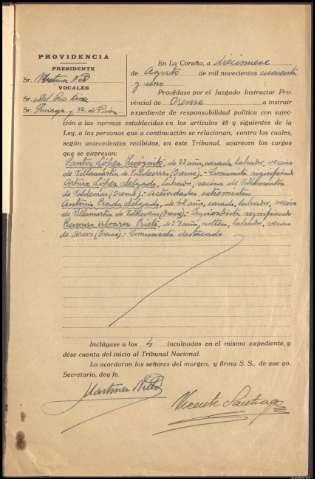 PROVIDENCIA
PRESIDENTE
Sr.
VOCALES
Sr. del Río
Sr.
En La Coruña, a diecinueve
de Agosto de mil novecientos cuarenta
y uno
Provéase por el Juzgado Instructor Pro-
vincial de Orense a instruir
expediente de responsabilidad política con suje-
ción a las normas establecidas en los artículos 45 y siguientes de la
Ley, a las personas que a continuación se relacionan, contra las cuales,
según antecedentes recibidos, en este Tribunal, aparecen los cargos
que se expresan:
López de años, casado, labrador, vecino
de Villamartín de Valdeorras (Orense).- Comunista significado
Arturo López Delgado, labrador, vecino de Villamartín
de Valdeorras (Orense).- Actividades extremistas
Antonio Prada Delgado, de 41 años, casado, labrador, vecino
de Villamartín de Valdeorras (Orense).- Izquierdista significado
Alvarez Prieto, de años, soltero, labrador, vecino
de (Orense).- Comunista destacado
Inclúyase a los 4 inculpados en el mismo expediente, y
dése cuenta del inicio al Tribunal Nacional.
Lo acordaron los señores del margen, y firma S. S., de que yo,
Secretario, doy fe.
Martínez
Vicente Santiago